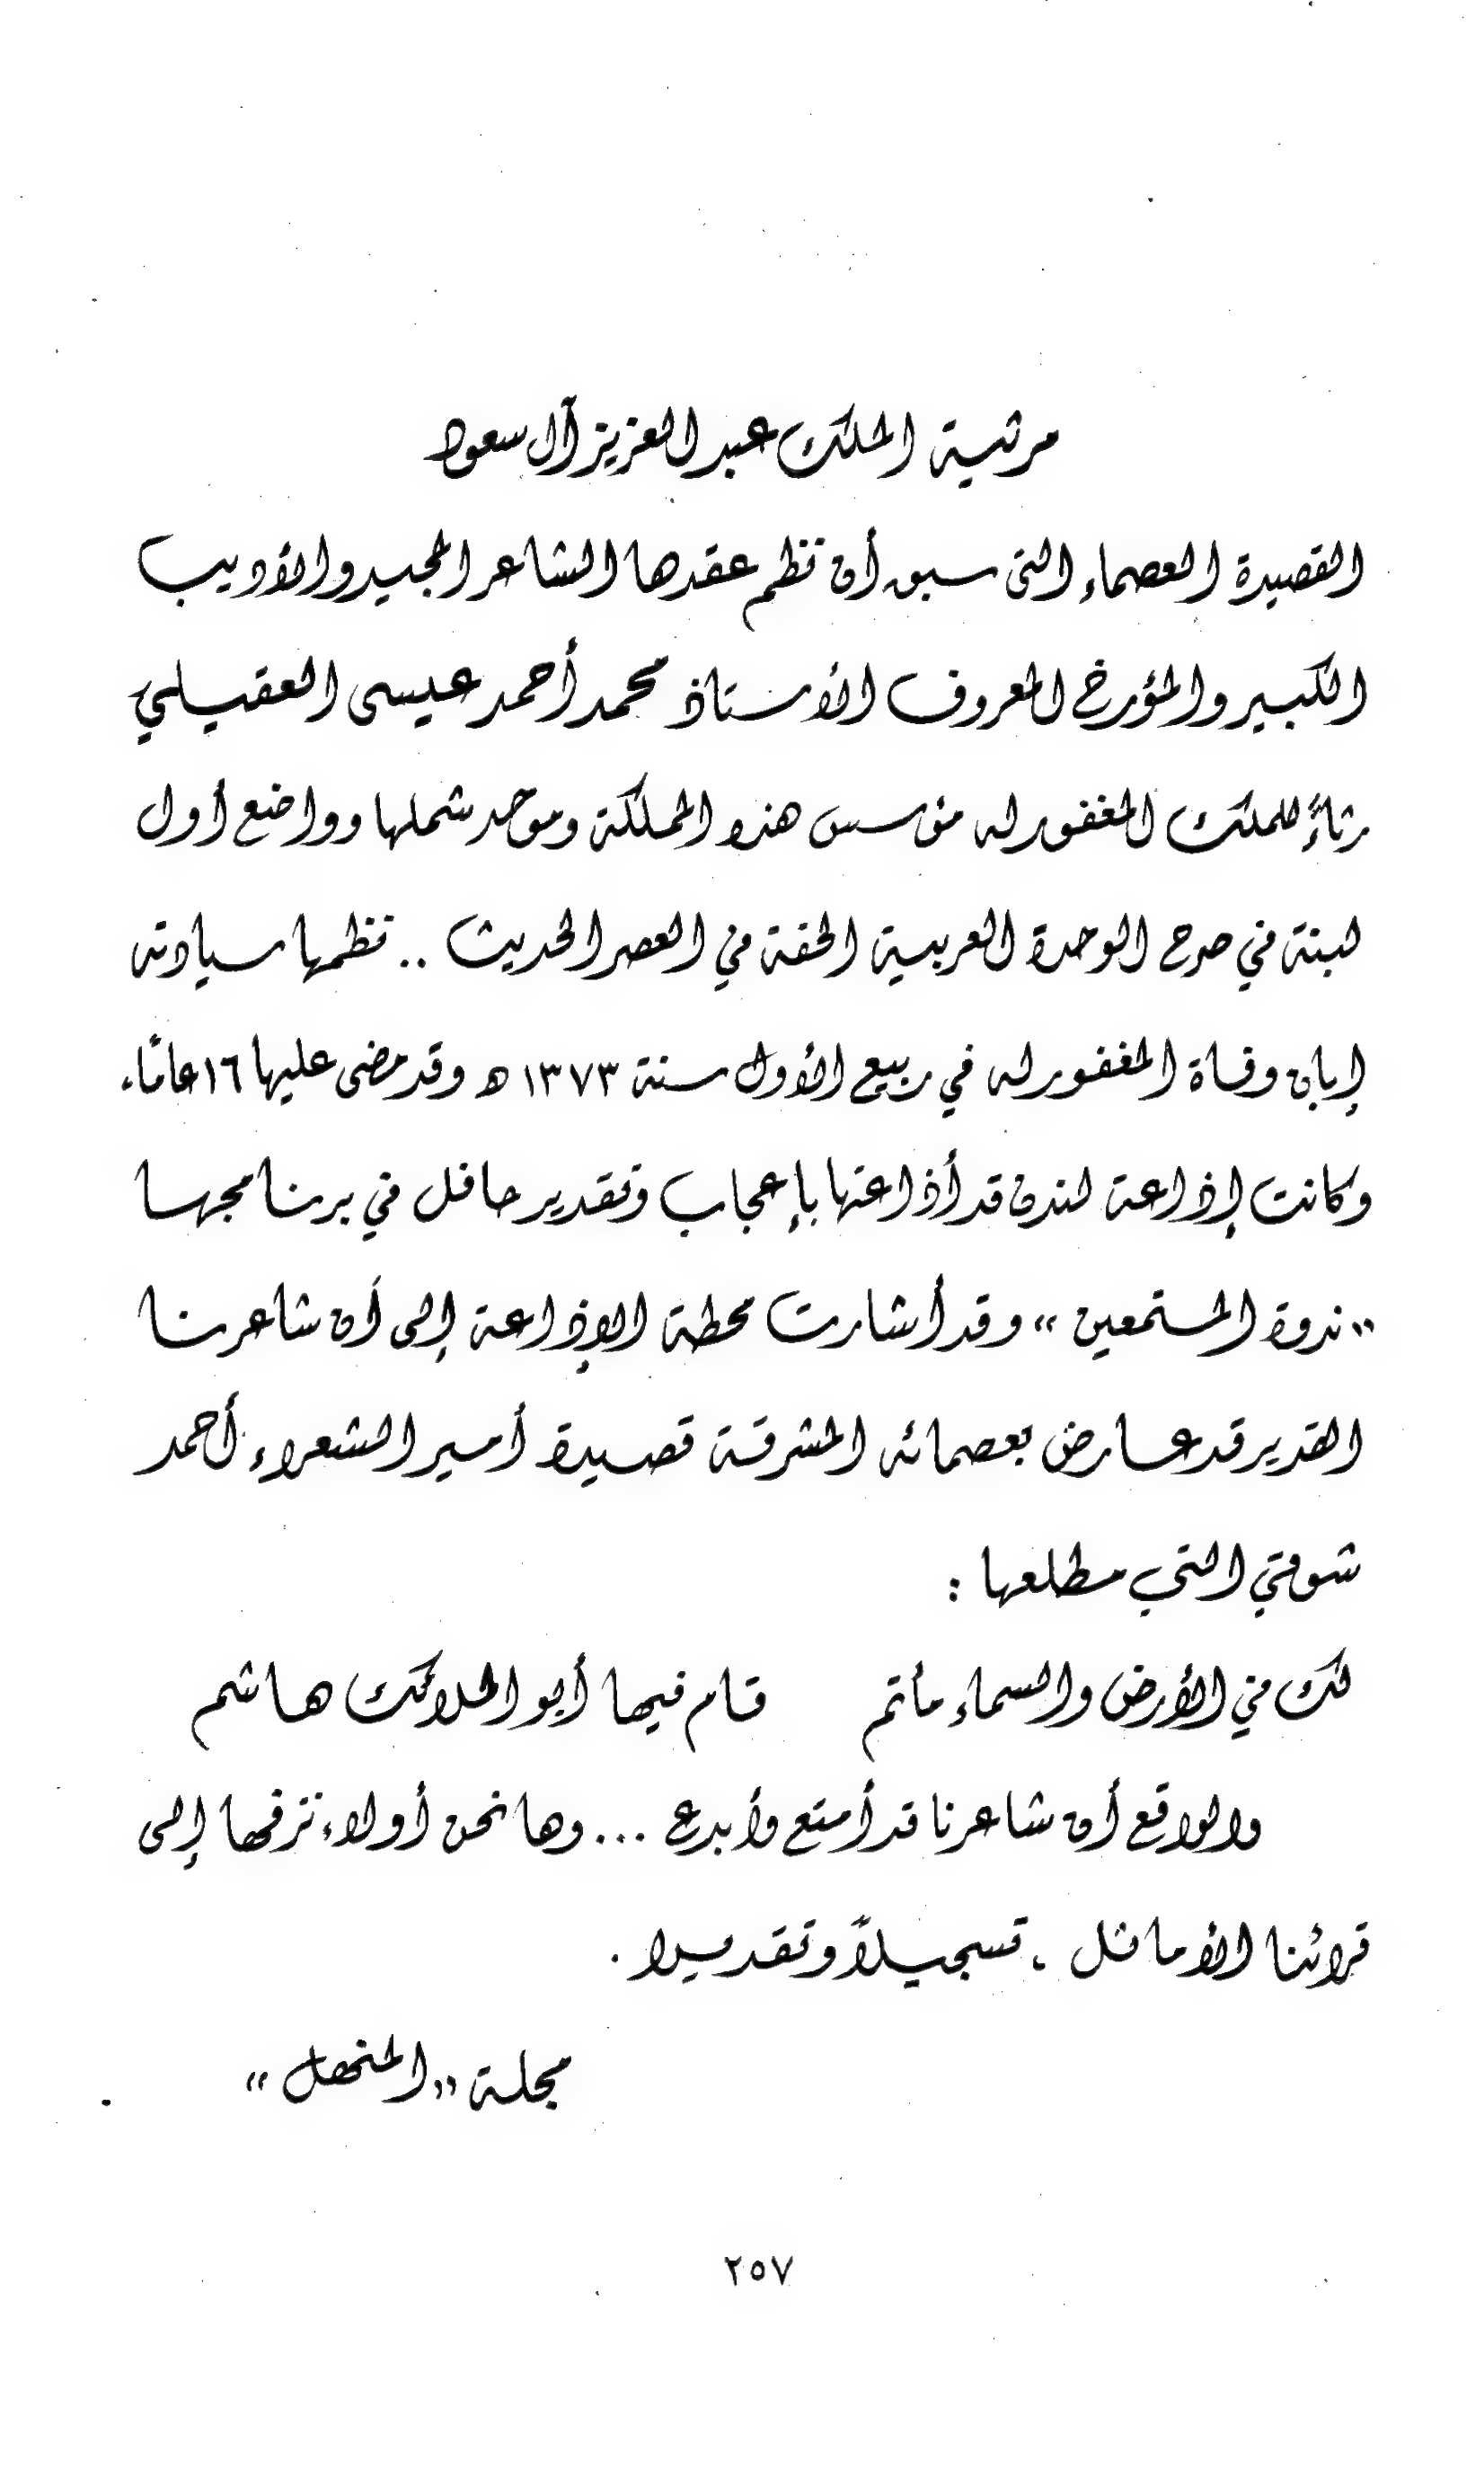 مرثية الملك عبد العزيز آل سعود
القصيدة العصماء التى سبق أن نظم عقدها الشاعر المجيد والأديب
الكبير والمؤرخ المعروف الأستاذ محمد أحمد عيسى العقيلي
رثاءً للملك المغفور له مؤسس هذه المملكة وموحد شملها وواضع أول
لبنة في صرح الوحدة العربية الحقة في العصر الحديث .. نظمها سيادته
إبان وفاة المغفور له في ربيع الأول سنة ١٣٧٣ هـ وقد مضى عليها ١٦ عامًا،
وكانت إذاعة لندن قد أذاعتها بإعجاب وتقدير حافل في برنامجها
« ندوة المستمعين » وقد أشارت محطة الإذاعة إلى أن شاعرنا
القدير قد عارض بعصمائه المشرقة قصيدة أمير الشعراء أحمد
شوقي التي مطلعها :
لك في الأرض والسماء مأتم قام فيها أبو الملائك هاشم
والواقع أن شاعرنا قد أمتع وأبدع ... وها نحن أولاء نزفها إلى
قرائنا الأماثل ، تسجيلاً وتقديرا .
مجلة « المنهل »
٢٥٧